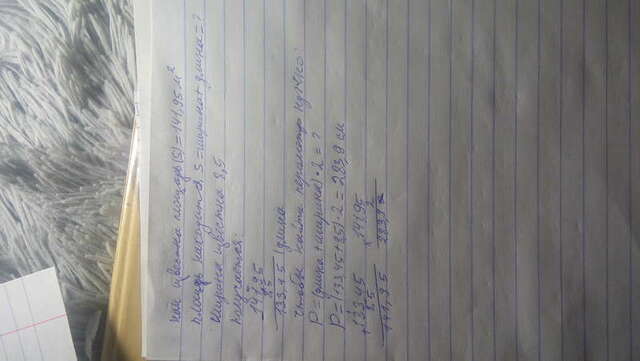 Нам известна площадь (S) = 141,95 м²
Площадь находит S = ширина + длина = ?
Ширина известна 8,5
Получается:
141,95
8,5
133,45 (длина
Чтобы найти периметр нужно:
P = (длина + ширина) · 2 = ?
P = (133,45 + 8,5) · 2 = 283,9 см
133,45 141,95
+ 8,5 × 2
141,95 283,9